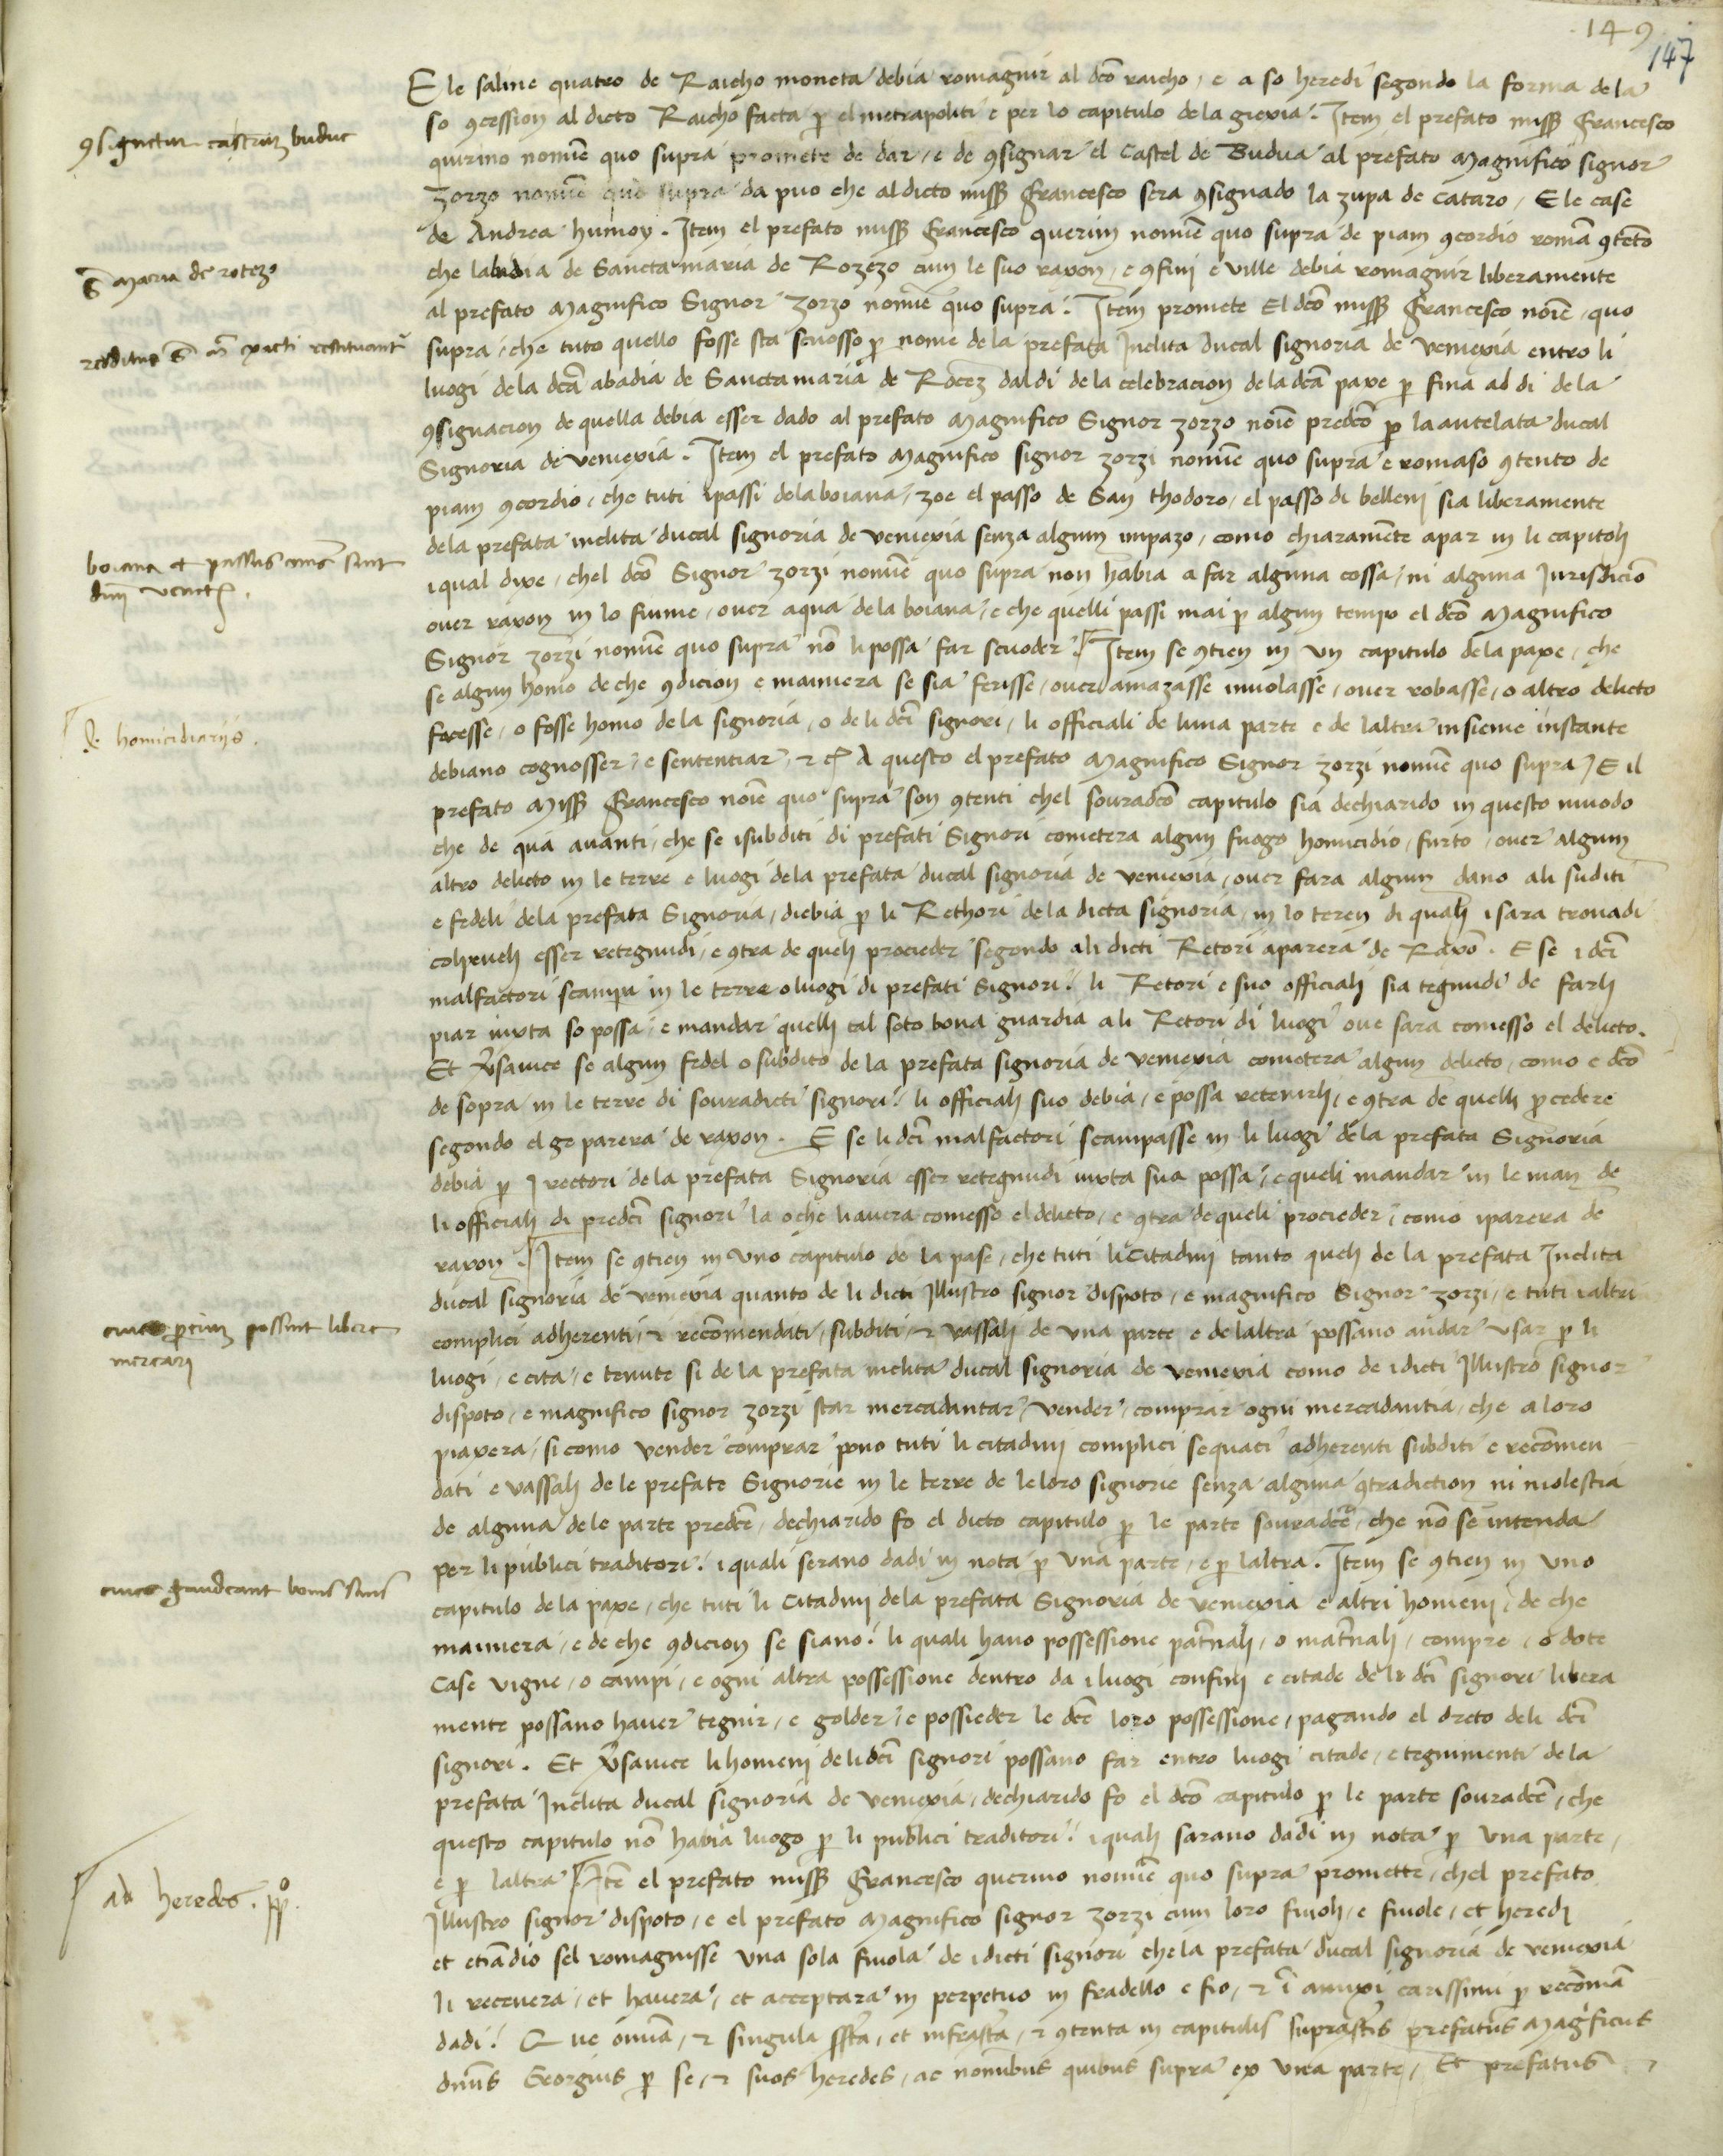 149
147
E le saline quatro de Raicho moneta debia romagnir al dco raicho, e a so heredi segondo la forma dela
so 9cession al dicto Raicho facta p el metrapoliti e per lo capitulo dela giexia. Item el prefato miss Francesco
9signetur castrum budue
quirino nomie quo supra promete de dar, e de 9signar el Castel de Budua al prefato Magnifico signor
Zorzo nomie quo supra da puo che al dicto miss Francesco sera 9signado la zupa de Cataro, E le case
de Andrea humoy. Item el prefato miss Francesco querini nomie quo supra de piam 9cordio roman 9tento
S Maria de rotezo
che labadia de Sancta maria de Rozezo cum le suo raxon, e 9fini e ville debia romagnir liberamente
al prefato Magnifico Signor Zorzo nomie quo supra. Item promete El dco miss Francesco noie, quo
supra, che tuto quello fosse sta scuosso p nome dela prefata Inclita ducal signoria de veniexia entro li
luogi dela dca abadia de Sancta maria de Rotez dal di de la celebracion dela dca paxe p fina ad di de la
9signacion de quella debia esser dado al prefato Magnifico Signor zorzo noie predco p la antelata ducal
Signoria de veniexia. Item el prefato Magnifico signor zorzi nomie quo supra e romaso 9tento de
piam 9cordio, che tuti ipassi dela boiana, zoe el passo de San thodoro, el passo di belleni sia liberamente
boiana et passus eius sint
dela prefata inclita ducal signoria de veniexia senza algum impazo, como chiaramente apar in li capitoli
iqual dixe, chel dco Signor zorzi nomie quo supra non habia a far alguna cossa, ni alguna Jurisdicio
ouer raxon in lo fiume, ouer aqua dela boiana, e che quelli passi mai p algum tempo el dco Magnifico
Signor zorzi nomie quo supra no li possa far scuoder. Item se 9tien in un capitulo dela paxe, che
se algun homo de che 9dicion e mainiera se sia ferisse, ouer amazasse inuolasse, ouer robasse, o altro delicto
de homicidiariis.
fecesse, o fosse homo dela signoria, o de li dci signori, li officiali de luna parte e de laltra insieme instante
debiano cognosser, e sententiar, A questo el prefato Magnifico Signor zorzi nomie quo supra E il
prefato Miss Francesco noie quo supra son 9tenti chel souradco capitulo sia dechiarido in questo muodo
che de qua auanti, che se isubditi di prefati Signori cometera algun fuogo homicidio, furto, ouer algum
altro delicto in le terre e luogi dela prefata ducal signoria de veniexia, ouer fara algum dano ali suditi
e fedeli dela prefata Signoria, diebia p li Rethori dela dicta signoria, in lo teren di quali isara trouadi
colpeueli esser retegnudi, e 9tra de queli procieder segondo ali dicti Retori aparera de Raxo. E se i dci
malfactori scampa in le terre o luogi di prefati Signori. li Retori e suo officiali sia tegnudi de farli
piar iuxta so possa, e mandar quelli tal soto bona guardia ali Retori di luogi oue sara comesso el delicto.
Et versauice se algun fedel o subdito de la prefata signoria de veniexia cometera algun delicto, como e dco
de sopra in le terre di souradicti signori. li officiali suo debia, e possa retenirli, e 9tra de quelli pcedere
segondo el ge parera de raxon. E se li dci malfactori scampasse in li luogi dela prefata Signoria
debia p I rectori dela prefata Signoria esser retegnudi iuxta sua possa, e queli mandar in le man de
li officiali di predci signori la o che li auera comesso el delicto, e 9tra de queli procieder, como iparera de
raxon. Item se 9tien in uno capitulo de la pase, che tuti li Citadini tanto queli de la prefata Inclita
ducal signoria de veniexia quanto de li dicti Illustro signor dispoto, e magnifico Signor zorzi, e tuti i altri
possint libere
mercari
complici adherenti, et recomendati, subditi, et vassali de una parte e de laltra possano andar usar p li
luogi, e cita, e tenute si de la prefata inclita ducal signoria de veniexia como de i dicti Illustro signor
dispoto, e magnifico signor zorzi star mercadantar, vender, comprar ogni mercadantia, che a loro
piaxera, si como vender comprar pono tuti li citadini complici sequaci adherenti subditi e recomen
dati e vassali de le prefate Signorie in le terre de le loro signorie senza alguna 9tradiction ni molestia
de alguna dele parte predce, dechiarido fo el dicto capitulo p le parte souradce, che no se intenda
per li publici traditori. i quali serano dadi in nota p una parte, e p laltra. Item se 9tien in uno
ciues gaudeant bonis suis
capitulo dela paxe, che tuti li Citadini dela prefata Signoria de veniexia e altri homeni, de che
mainiera, e de che 9dicion se siano. li quali hano possessione patnali, o matnali, compre, o dote
Case vigne, o campi, e ogni altra possessione dentro da i luogi confini e citade de li dci signori libera
mente possano hauer tegnir, e golder, e possieder le dce loro possessione, pagando el dreto deli dci
signori. Et versauice li homeni deli dci signori possano far entro luogi citade, e tegnimenti dela
prefata Inclita ducal signoria de veniexia, dechiarido fo el dco capitulo p le parte souradce, che
questo capitulo no habia luogo p li publici traditori. i quali sarano dadi in nota p una parte,
ad heredes.
e p laltra. Ite el prefato miss Francesco querino nomie quo supra promette, chel prefato
Illustro signor dispoto, e el prefato Magnifico signor zorzi cum loro fiuoli, e fiuole, et heredi
et etiadio sel romagnisse una sola fiuola de i dicti signori che la prefata ducal signoria de veniexia
li receuera, et hauera, et acceptara in perpetuo in fradello e fio, et i amixi carissimi p recoman
dadi. Que omia, et singula ssta, et infrasta, et 9tenta in capitulis suprastis prefatus Magficus
dnus Georgius p se, et suos heredes, ac nomibus quibus supra ex una parte, Et prefatus